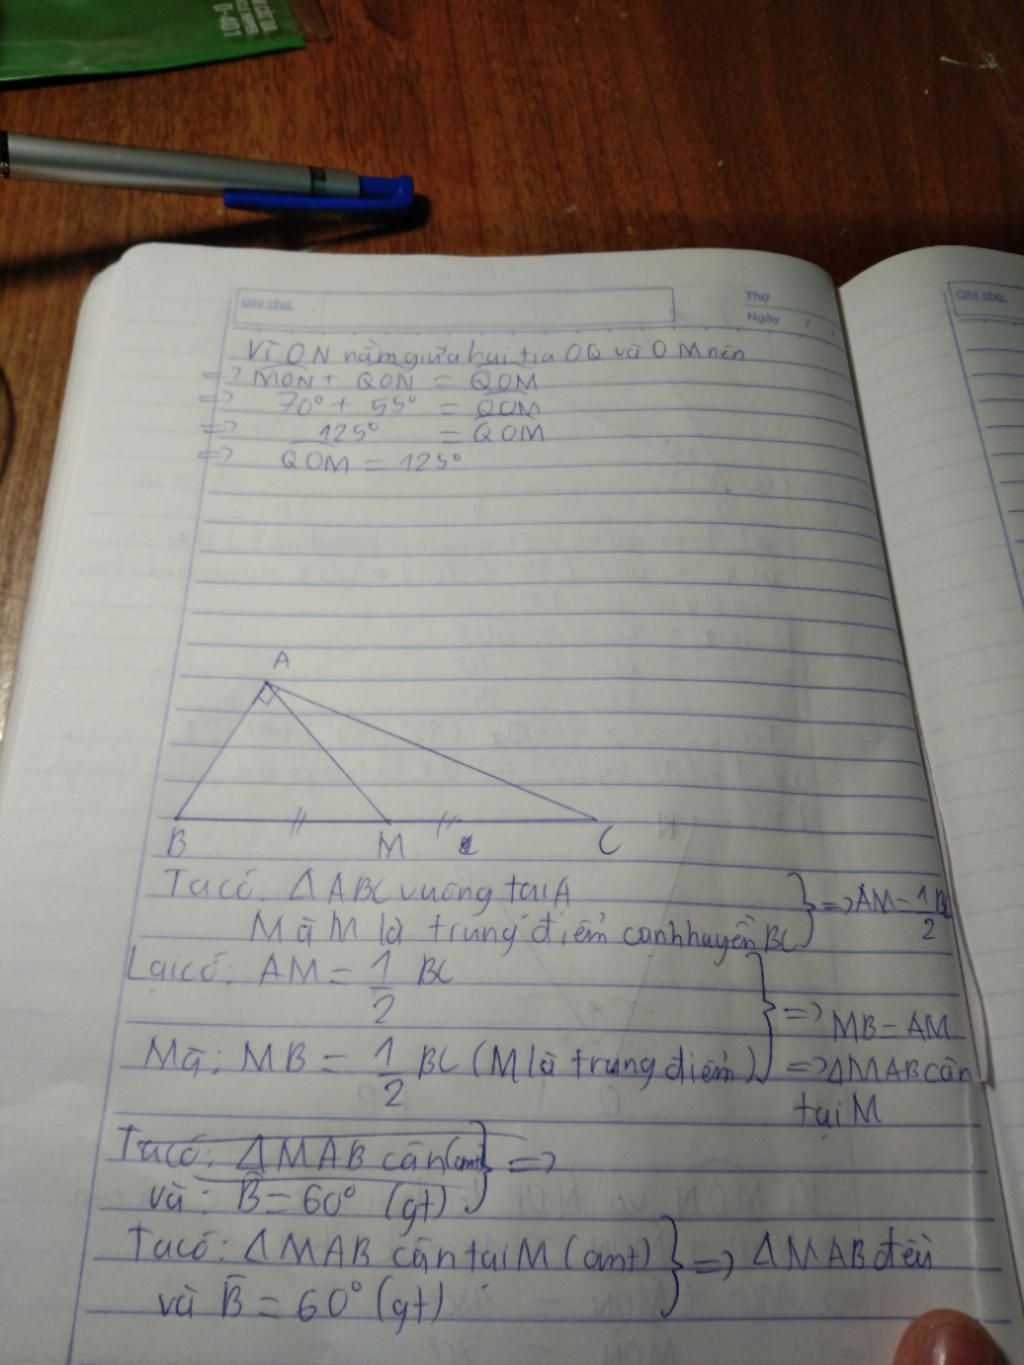 Ghi chú:
Thứ
Ngày / /
Ghi chú:
Vì ON nằm giữa hai tia OQ và OM nên
=> MON + QON = QOM
=> 70° + 55° = QOM
=> 125° = QOM
=> QOM = 125°
A
B M C
Ta có: ΔABC vuông tại A
Mà M là trung điểm cạnh huyền BC
=> AM = 1/2 BC
Lại có: AM = 1/2 BC
Mà: MB = 1/2 BC (M là trung điểm)
=> MB = AM
=> ΔMAB cân
tại M
Ta có: ΔMAB cân (cmt) =>
và: B̂ = 60° (gt)
Ta có: ΔMAB cân tại M (cmt) => ΔMAB đều
và B̂ = 60° (gt)